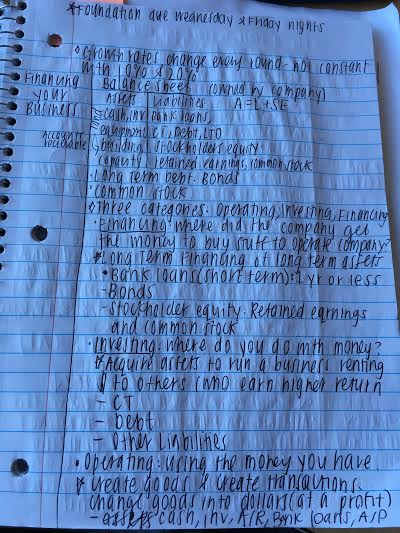 *Foundation due wednesday & Friday nights
• Growth rates change every round- not constant
with 10% & 20%
Financing your Business
Balance sheet (owned by company)
Assets Liabilities A=L+SE
cash, inv bank loans,
equipment CT, Debt, LTD
Accounts
building stockholders equity:
capacity retained earnings, common stock
• Long term Debt: Bonds
• Common stock
• Three categories: Operating, Investing, Financing
• Financing: where did the company get
the money to buy stuff to operate company?
* Long Term Financing of long term assets
• Bank loans (short term): 1 yr or less
- Bonds
- stockholder equity: Retained earnings
and common stock
• Investing: where do you do with money?
* Acquire assets to run a business renting
to others (who earn higher return
- CT
- Debt
- Other Liabilities
• Operating: using the money you have
* create goods & create transactions.
change goods into dollars (at a profit)
- assets cash, inv, A/R, Bank loans, A/P